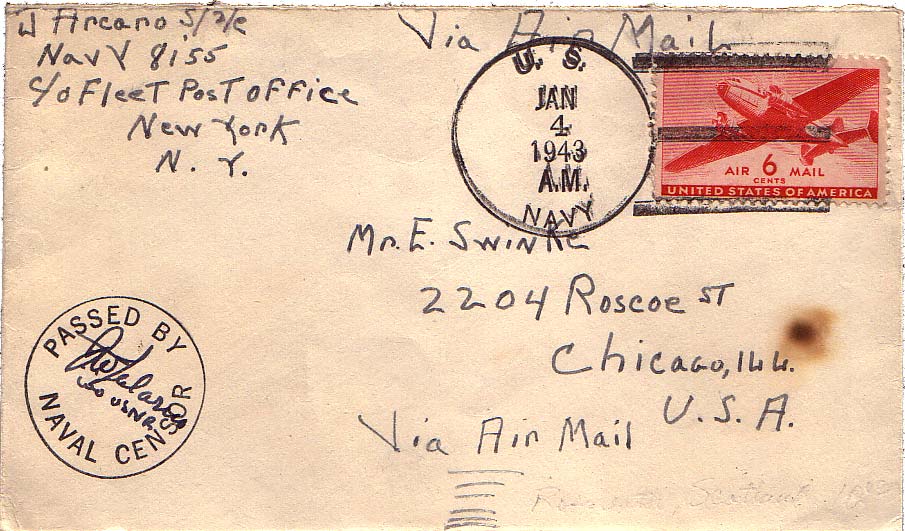 J Arcano S/2/c
Navy 8155
c/o Fleet Post Office
New York
N. Y.
Via Air Mail
U. S.
JAN
4
1943
A.M.
NAVY
AIR 6 MAIL
CENTS
UNITED STATES OF AMERICA
Mr. E. Swinke
2204 Roscoe ST
Chicago, ILL.
U.S.A.
Via Air Mail
PASSED BY
USNR
NAVAL CENSOR
Scotland